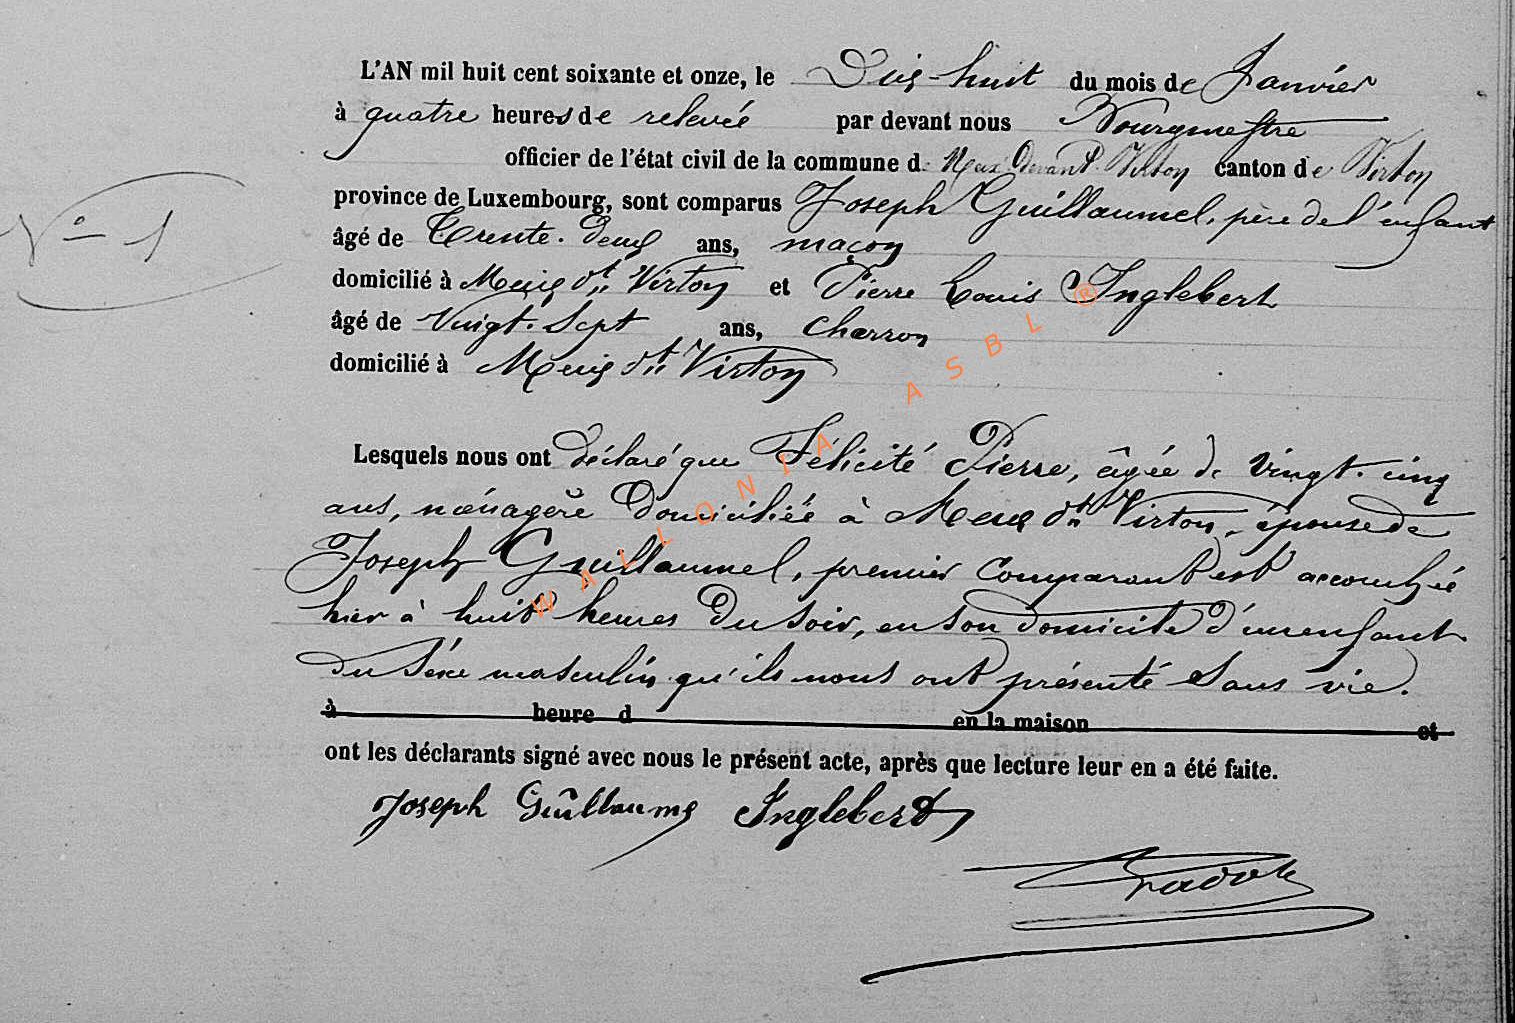 L'AN mil huit cent soixante et onze, le Dix-huit du mois de Janvier
à quatre heures de relevée par devant nous Bourgmestre
officier de l'état civil de la commune de Meix Devant Virton canton de Virton
N° 1
province de Luxembourg, sont comparus Joseph Guillaumel, père de l'enfant
âgé de Trente-deux ans, maçon
domicilié à Meix dt Virton et Pierre Louis Inglebert
âgé de Vingt-Sept ans, Charron
domicilié à Meix dt Virton
Lesquels nous ont déclaré que Félicité Pierre, âgée de vingt-cinq
ans, ménagère domiciliée à Meix dt Virton, épouse de
Joseph Guillaumel, premier Comparant est accouchée
hier à huit heures du soir, en son domicile d'un enfant
du Séxe masculin qu'ils nous ont présenté Sans vie.
à heure d en la maison et
ont les déclarants signé avec nous le présent acte, après que lecture leur en a été faite.
Joseph Guillaume Inglebert
WALLONIA ASBL ®